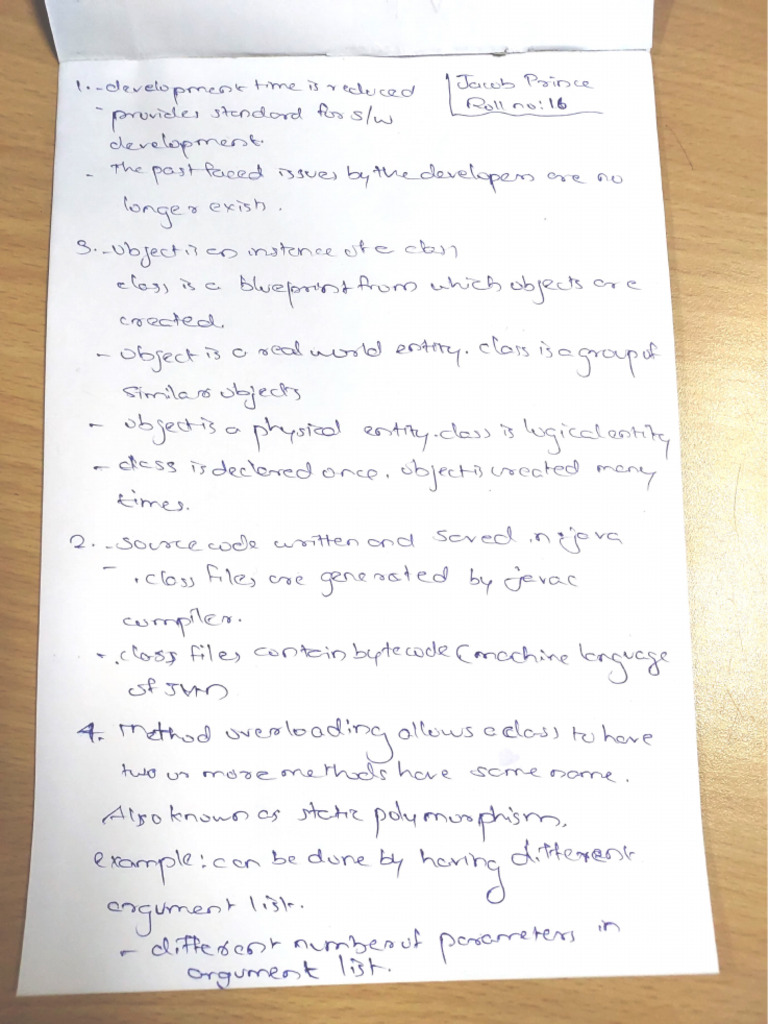 1. - development time is reduced
Jacob Prince
Roll no: 16
- provides standard for s/w
development.
- The past faced issues by the developers are no
longer exist.
3. - Object is an instance of a class
class is a blueprint from which objects are
created.
- Object is a real world entity. class is a group of
similar objects
- object is a physical entity. class is logical entity
- class is declared once. object is created many
times.
2. - source code written and saved in .java
- .class files are generated by javac
compiler.
- .class files contain bytecode (machine language
of JVM)
4. Method overloading allows a class to have
two or more methods have same name.
Also known as static polymorphism.
example: can be done by having different
argument list.
- different number of parameters in
argument list.